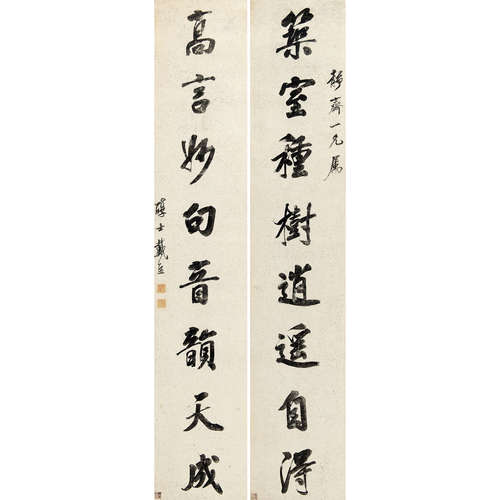 静齋一兄属
築室種樹逍遥自得
高言妙句音韻天成
醇士戴熙